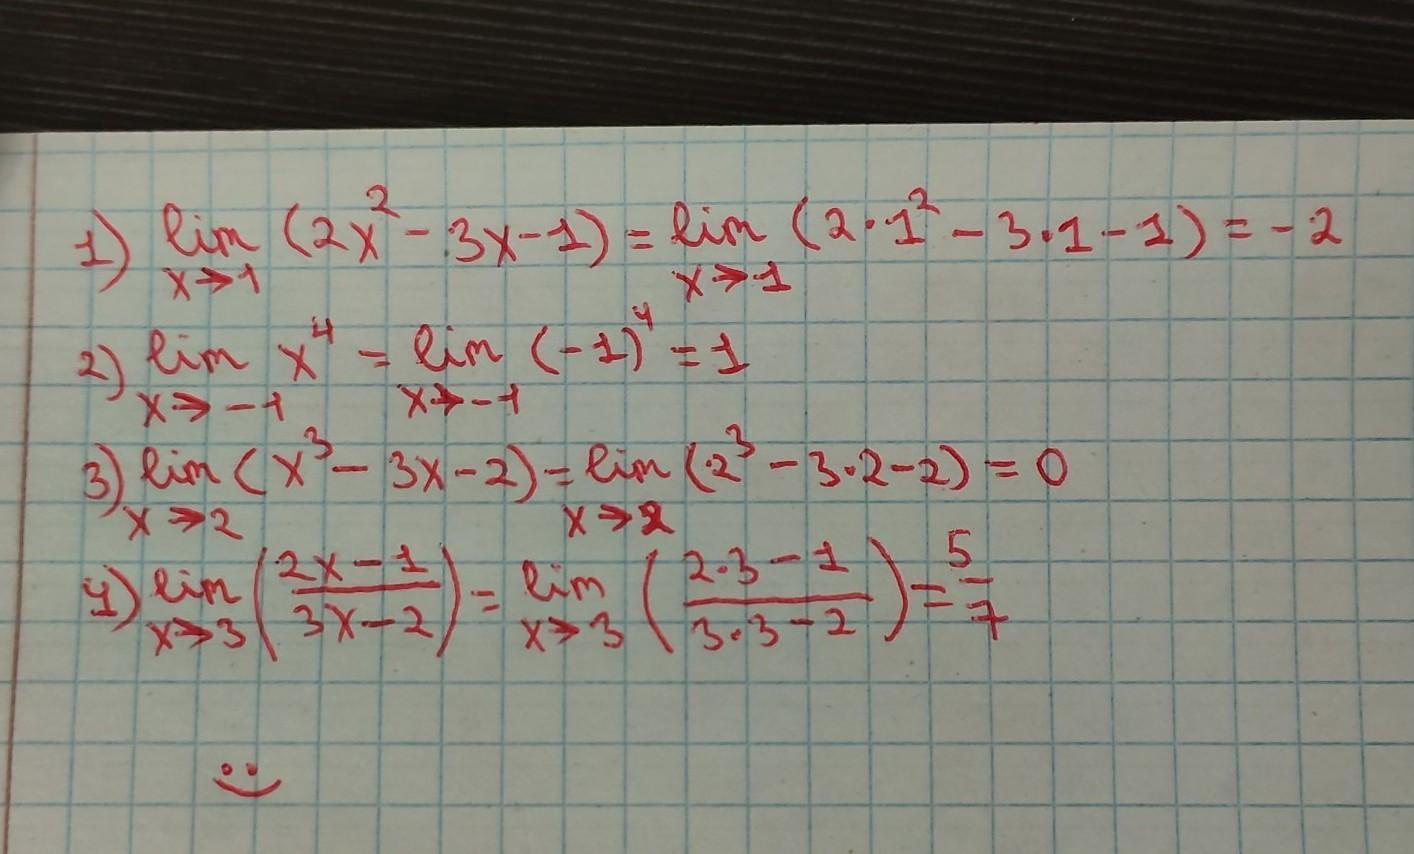 1) lim x→1 (2x² - 3x - 1) = lim x→1 (2·1² - 3·1 - 1) = -2
2) lim x→-1 x⁴ = lim x→-1 (-1)⁴ = 1
3) lim x→2 (x³ - 3x - 2) = lim x→2 (2³ - 3·2 - 2) = 0
4) lim x→3 ((2x - 1)/(3x - 2)) = lim x→3 ((2·3 - 1)/(3·3 - 2)) = 5/7